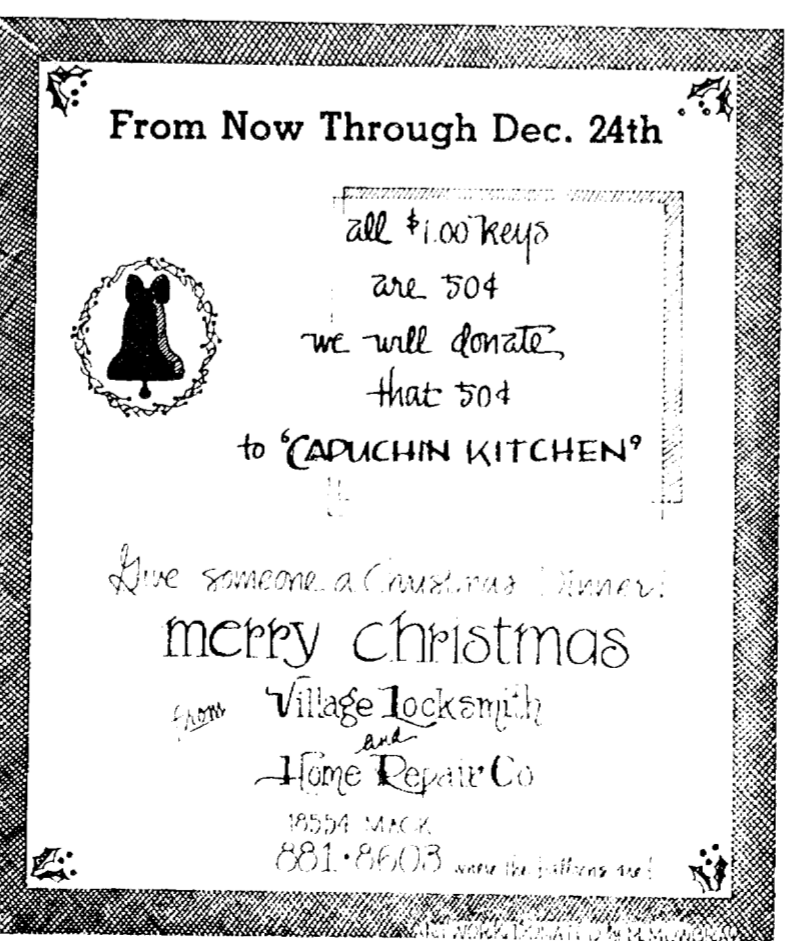 From Now Through Dec. 24th
all $1.00 keys
are 50¢
we will donate
that 50¢
to "CAPUCHIN KITCHEN"
Give someone a Christmas Dinner!
merry christmas
from Village Locksmith
and
Home Repair Co
18554 MACK
881·8603 where the balloons are!